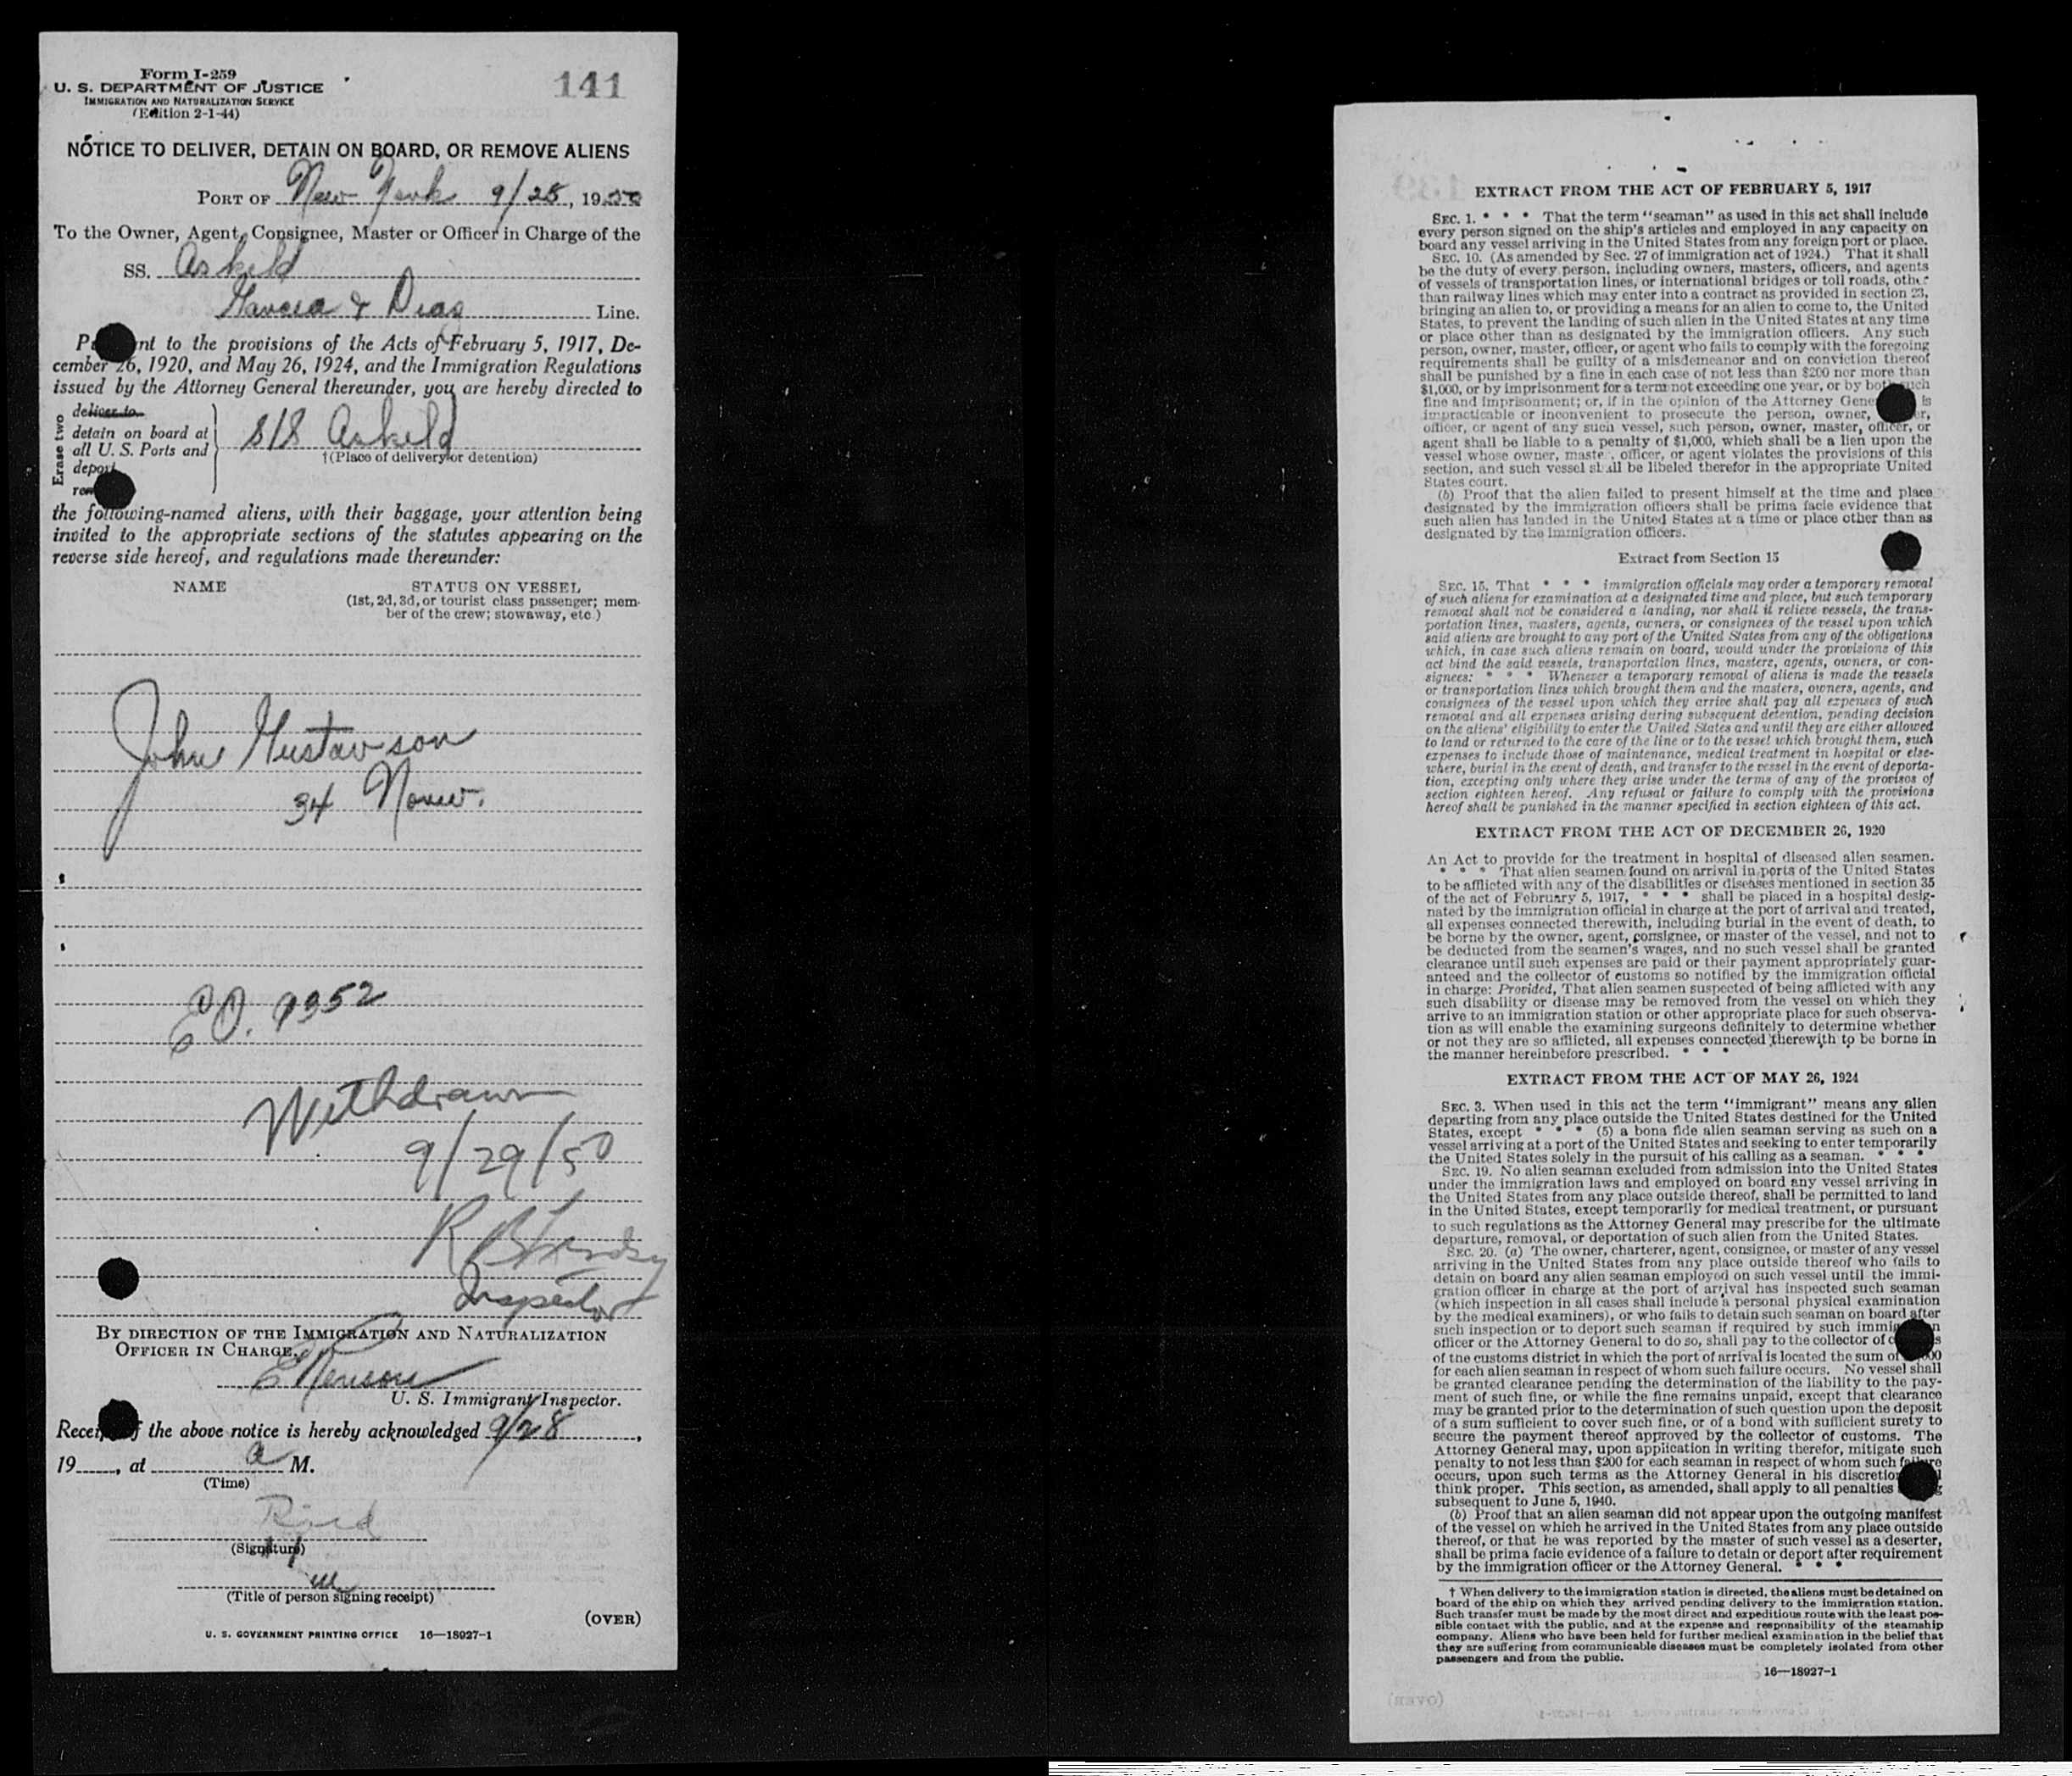 Form I-259
U. S. DEPARTMENT OF JUSTICE
IMMIGRATION AND NATURALIZATION SERVICE
(Edition 2-1-44)
141
NOTICE TO DELIVER, DETAIN ON BOARD, OR REMOVE ALIENS
PORT OF New York 9/28, 1950
To the Owner, Agent, Consignee, Master or Officer in Charge of the
SS. Askeld
Garcia & Diaz Line.
nt to the provisions of the Acts of February 5, 1917, De-
cember 26, 1920, and May 26, 1924, and the Immigration Regulations
issued by the Attorney General thereunder, you are hereby directed to
Erase two
deliver to
detain on board at
all U. S. Ports and
deport
S/S Askeld
†(Place of delivery or detention)
the following-named aliens, with their baggage, your attention being
invited to the appropriate sections of the statutes appearing on the
reverse side hereof, and regulations made thereunder:
NAME STATUS ON VESSEL
(1st, 2d, 3d, or tourist class passenger; mem-
ber of the crew; stowaway, etc.)
John Gustavson
34 Norw.
EO. 9352
Withdrawn
9/29/50
Inspector
BY DIRECTION OF THE IMMIGRATION AND NATURALIZATION
OFFICER IN CHARGE.
U. S. Immigrant Inspector.
the above notice is hereby acknowledged 9/28,
19, at a M.
(Time)
(Signature)
(Title of person signing receipt)
(OVER)
U. S. GOVERNMENT PRINTING OFFICE 16—18927-1
EXTRACT FROM THE ACT OF FEBRUARY 5, 1917
SEC. 1. * * * That the term "seaman" as used in this act shall include
every person signed on the ship's articles and employed in any capacity on
board any vessel arriving in the United States from any foreign port or place.
SEC. 10. (As amended by Sec. 27 of immigration act of 1924.) That it shall
be the duty of every person, including owners, masters, officers, and agents
of vessels of transportation lines, or international bridges or toll roads, other
than railway lines which may enter into a contract as provided in section 23,
bringing an alien to, or providing a means for an alien to come to, the United
States, to prevent the landing of such alien in the United States at any time
or place other than as designated by the immigration officers. Any such
person, owner, master, officer, or agent who fails to comply with the foregoing
requirements shall be guilty of a misdemeanor and on conviction thereof
shall be punished by a fine in each case of not less than $200 nor more than
$1,000, or by imprisonment for a term not exceeding one year, or by both such
fine and imprisonment; or, if in the opinion of the Attorney Gene is
impracticable or inconvenient to prosecute the person, owner, er,
officer, or agent of any such vessel, such person, owner, master, officer, or
agent shall be liable to a penalty of $1,000, which shall be a lien upon the
vessel whose owner, master, officer, or agent violates the provisions of this
section, and such vessel shall be libeled therefor in the appropriate United
States court.
(b) Proof that the alien failed to present himself at the time and place
designated by the immigration officers shall be prima facie evidence that
such alien has landed in the United States at a time or place other than as
designated by the immigration officers.
Extract from Section 15
SEC. 15. That * * * immigration officials may order a temporary removal
of such aliens for examination at a designated time and place, but such temporary
removal shall not be considered a landing, nor shall it relieve vessels, the trans-
portation lines, masters, agents, owners, or consignees of the vessel upon which
said aliens are brought to any port of the United States from any of the obligations
which, in case such aliens remain on board, would under the provisions of this
act bind the said vessels, transportation lines, masters, agents, owners, or con-
signees: * * * Whenever a temporary removal of aliens is made the vessels
or transportation lines which brought them and the masters, owners, agents, and
consignees of the vessel upon which they arrive shall pay all expenses of such
removal and all expenses arising during subsequent detention, pending decision
on the aliens' eligibility to enter the United States and until they are either allowed
to land or returned to the care of the line or to the vessel which brought them, such
expenses to include those of maintenance, medical treatment in hospital or else-
where, burial in the event of death, and transfer to the vessel in the event of deporta-
tion, excepting only where they arise under the terms of any of the provisos of
section eighteen hereof. Any refusal or failure to comply with the provisions
hereof shall be punished in the manner specified in section eighteen of this act.
EXTRACT FROM THE ACT OF DECEMBER 26, 1920
An Act to provide for the treatment in hospital of diseased alien seamen.
* * * That alien seamen found on arrival in ports of the United States
to be afflicted with any of the disabilities or diseases mentioned in section 35
of the act of February 5, 1917, * * * shall be placed in a hospital desig-
nated by the immigration official in charge at the port of arrival and treated,
all expenses connected therewith, including burial in the event of death, to
be borne by the owner, agent, consignee, or master of the vessel, and not to
be deducted from the seamen's wages, and no such vessel shall be granted
clearance until such expenses are paid or their payment appropriately guar-
anteed and the collector of customs so notified by the immigration official
in charge: Provided, That alien seamen suspected of being afflicted with any
such disability or disease may be removed from the vessel on which they
arrive to an immigration station or other appropriate place for such observa-
tion as will enable the examining surgeons definitely to determine whether
or not they are so afflicted, all expenses connected therewith to be borne in
the manner hereinbefore prescribed. * * *
EXTRACT FROM THE ACT OF MAY 26, 1924
SEC. 3. When used in this act the term "immigrant" means any alien
departing from any place outside the United States destined for the United
States, except * * * (5) a bona fide alien seaman serving as such on a
vessel arriving at a port of the United States and seeking to enter temporarily
the United States solely in the pursuit of his calling as a seaman. * * *
SEC. 19. No alien seaman excluded from admission into the United States
under the immigration laws and employed on board any vessel arriving in
the United States from any place outside thereof, shall be permitted to land
in the United States, except temporarily for medical treatment, or pursuant
to such regulations as the Attorney General may prescribe for the ultimate
departure, removal, or deportation of such alien from the United States.
SEC. 20. (a) The owner, charterer, agent, consignee, or master of any vessel
arriving in the United States from any place outside thereof who fails to
detain on board any alien seaman employed on such vessel until the immi-
gration officer in charge at the port of arrival has inspected such seaman
(which inspection in all cases shall include a personal physical examination
by the medical examiners), or who fails to detain such seaman on board after
such inspection or to deport such seaman if required by such immig n
officer or the Attorney General to do so, shall pay to the collector of c s
of the customs district in which the port of arrival is located the sum of 00
for each alien seaman in respect of whom such failure occurs. No vessel shall
be granted clearance pending the determination of the liability to the pay-
ment of such fine, or while the fine remains unpaid, except that clearance
may be granted prior to the determination of such question upon the deposit
of a sum sufficient to cover such fine, or of a bond with sufficient surety to
secure the payment thereof approved by the collector of customs. The
Attorney General may, upon application in writing therefor, mitigate such
penalty to not less than $200 for each seaman in respect of whom such failure
occurs, upon such terms as the Attorney General in his discretion
think proper. This section, as amended, shall apply to all penalties g
subsequent to June 5, 1940.
(b) Proof that an alien seaman did not appear upon the outgoing manifest
of the vessel on which he arrived in the United States from any place outside
thereof, or that he was reported by the master of such vessel as a deserter,
shall be prima facie evidence of a failure to detain or deport after requirement
by the immigration officer or the Attorney General. * * *
† When delivery to the immigration station is directed, the aliens must be detained on
board of the ship on which they arrived pending delivery to the immigration station.
Such transfer must be made by the most direct and expeditious route with the least pos-
sible contact with the public, and at the expense and responsibility of the steamship
company. Aliens who have been held for further medical examination in the belief that
they are suffering from communicable diseases must be completely isolated from other
passengers and from the public.
16—18927-1